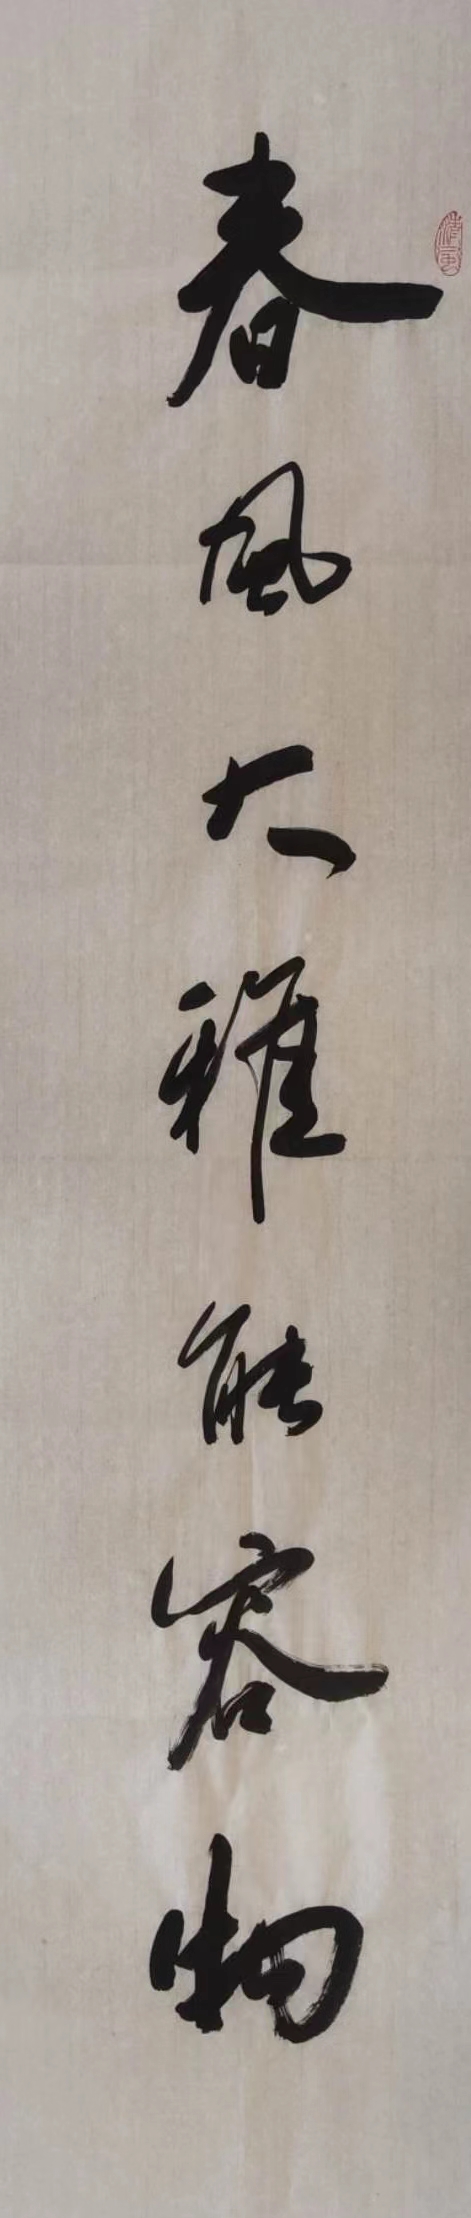 春風大雅能容物